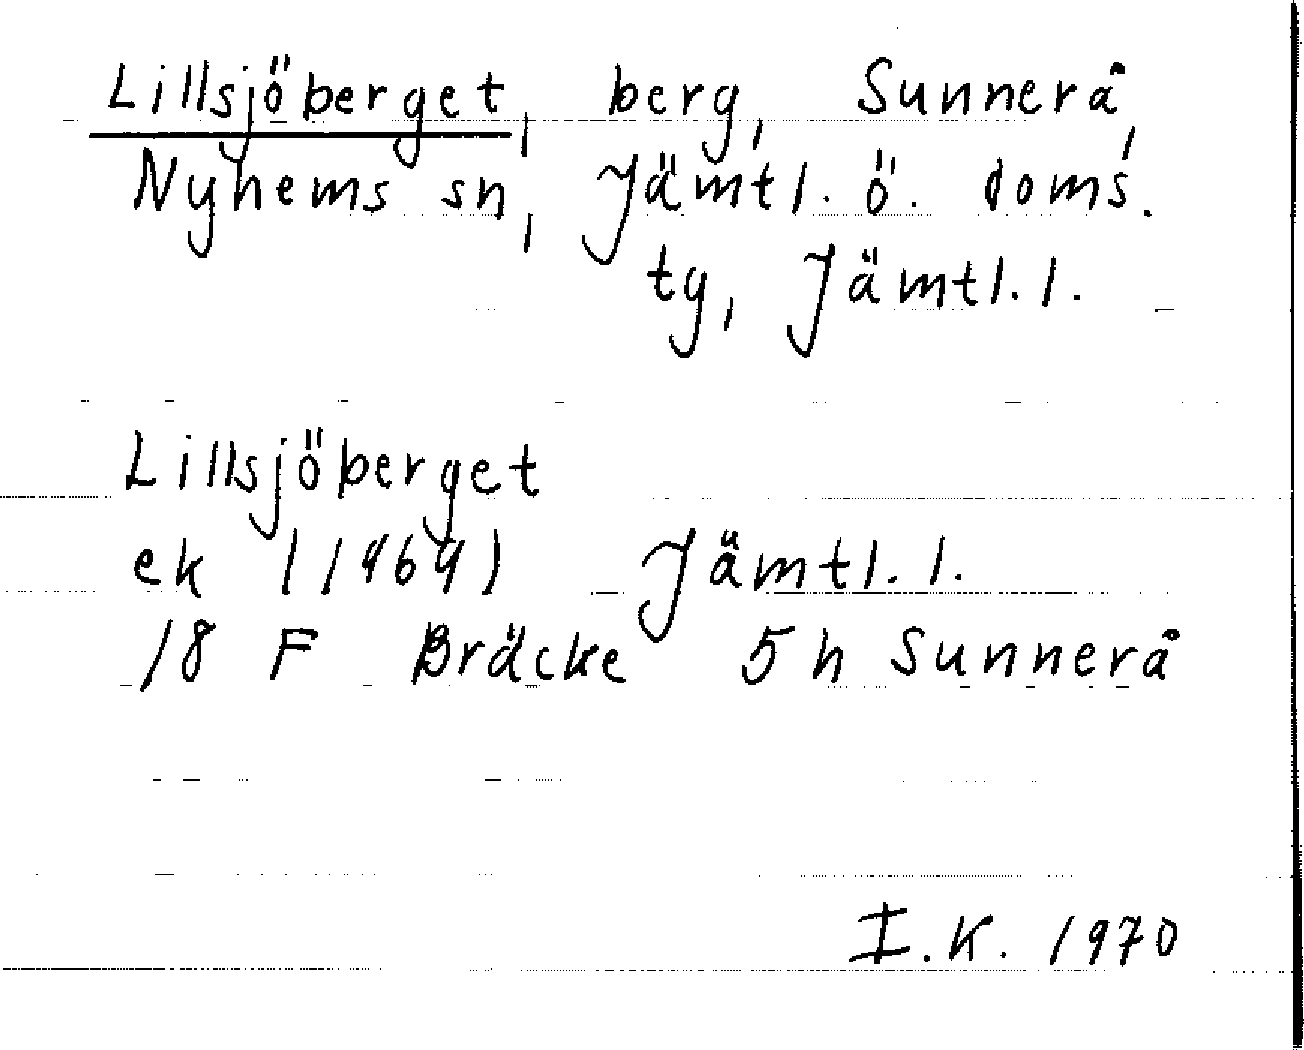 Lillsjöberget, berg, Sunnerå,
Nyhems sn, Jämtl. ö. doms.
tg, Jämtl. l.
Lillsjöberget
ek (1969) Jämtl. l.
18 F Bräcke 5 h Sunnerå
I.K. 1970